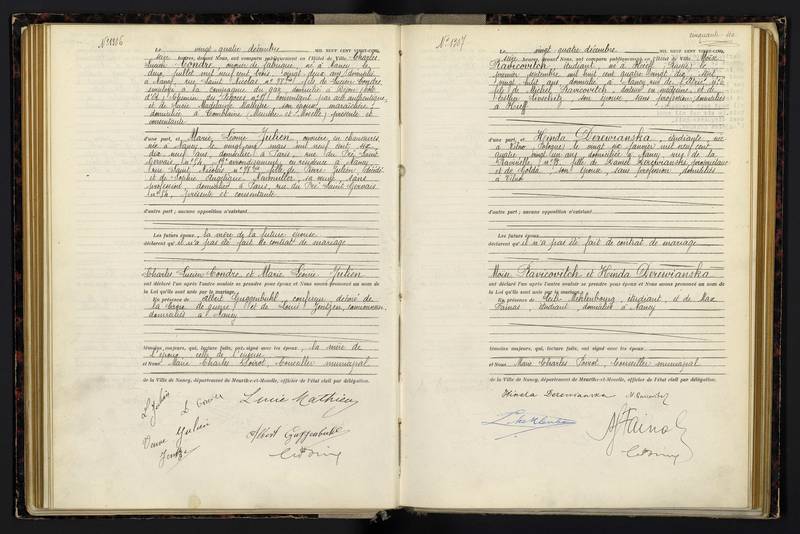 N° 1306
Le vingt quatre décembre MIL NEUF CENT VINGT-CINQ,
seize heures, devant Nous, ont comparu publiquement en l'Hôtel de Ville: Charles
Lucien Condre, ouvrier de fabrique, né à Nancy le
deux juillet mil neuf cent trois, vingt deux ans, domicilié
à Nancy, rue Saint Nicolas n°, fils de Lucien Condre,
employé à la compagnie du gaz, domicilié à Dijon
et de Lucie Madeleine Mathieu, son épouse, maraîchère,
domiciliée à Tomblaine (Meurthe et Moselle) présente et
consentante
d'une part, et Marie Léonie Julien, ouvrière en chaussures,
née à Nancy, le vingt cinq mars mil neuf cent six
dix neuf ans, domiciliée à Paris, rue du Pré Saint
Gervais, arrondissement, en résidence à Nancy
rue Saint Nicolas, fille de Pierre Julien, décédé
et de Sophie, sa veuve, sans
profession, domiciliée à Paris, rue du Pré Saint Gervais
présente et consentante
d'autre part; aucune opposition n'existant
Les futurs époux, la mère de la future épouse
déclarent qu'il n'a pas été fait de contrat de mariage
Charles Lucien Condre et Marie Léonie Julien
ont déclaré l'un après l'autre vouloir se prendre pour époux et Nous avons prononcé au nom de
la Loi qu'ils sont unis par le mariage.
En présence de Albert Guggenbuhl, coiffeur, décoré de
la Croix de guerre, et de Louis Jentzen,
domiciliés à Nancy
témoins, majeurs, qui, lecture faite, ont signé avec les époux, la mère de
l'époux, celle de l'épouse
et Nous Marie Charles Poirot, Conseiller municipal
de la Ville de Nancy, département de Meurthe-et-Moselle, officier de l'état civil par délégation.
L Julien
L Condre
Lucie Mathieu
Veuve Julien
Albert Guggenbuhl
N° 1307
cinquante
Le vingt quatre décembre MIL NEUF CENT VINGT-CINQ,
seize heures, devant Nous, ont comparu publiquement en l'Hôtel de Ville: Moïse
Ravicovitch, étudiant, né à Kieff (Russie) le
premier septembre mil huit cent quatre vingt dix sept
vingt huit ans, domicilié à Nancy, rue
fils de Michel Ravicovitch, docteur en médecine, et de
son épouse, sans profession, domiciliés
à Kieff
d'une part, et Hinda Derewianska, étudiante, née
à Vilno, Pologne, le vingt six janvier mil neuf cent
quatre, vingt un ans, domiciliée à Nancy, rue de la
Ravinelle, fille de Daniel, propriétaire
et de Golda, son épouse, sans profession, domiciliés
à Vilno
d'autre part; aucune opposition n'existant
Les futurs époux
déclarent qu'il n'a pas été fait de contrat de mariage
Moïse Ravicovitch et Hinda Derewianska
ont déclaré l'un après l'autre vouloir se prendre pour époux et Nous avons prononcé au nom de
la Loi qu'ils sont unis par le mariage.
En présence de Mehlenbourg, étudiant, et de Max
Fainas, étudiant, domiciliés à Nancy
témoins, majeurs, qui, lecture faite, ont signé avec les époux
et Nous Marie Charles Poirot, Conseiller municipal
de la Ville de Nancy, département de Meurthe-et-Moselle, officier de l'état civil par délégation.
Hinda Derewianska